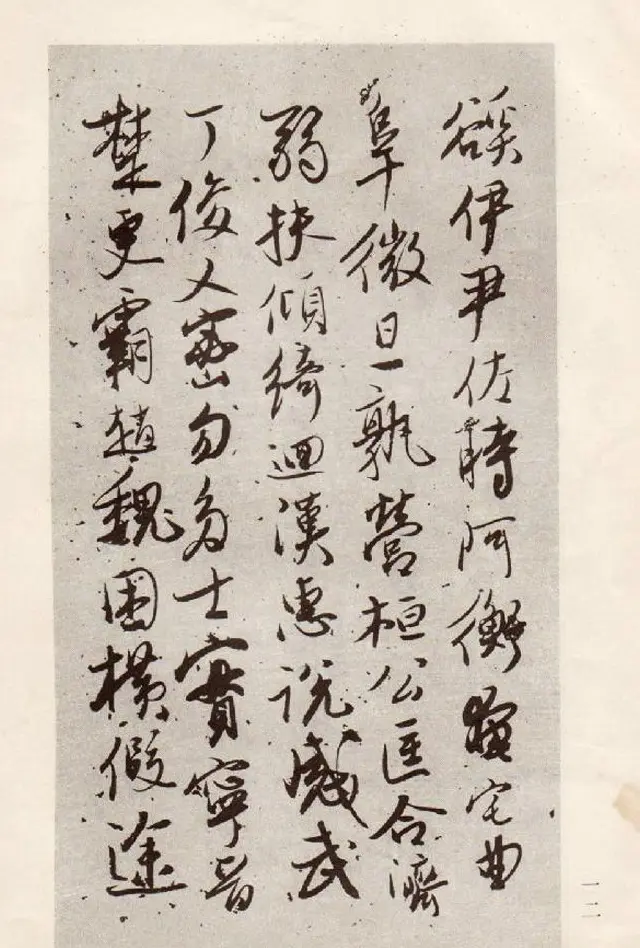 谿伊尹佐時阿衡奄宅曲
阜微旦孰營桓公匡合濟
弱扶傾綺迴漢惠說感武
丁俊乂密勿多士實寧晉
楚更霸趙魏困橫假途
一二